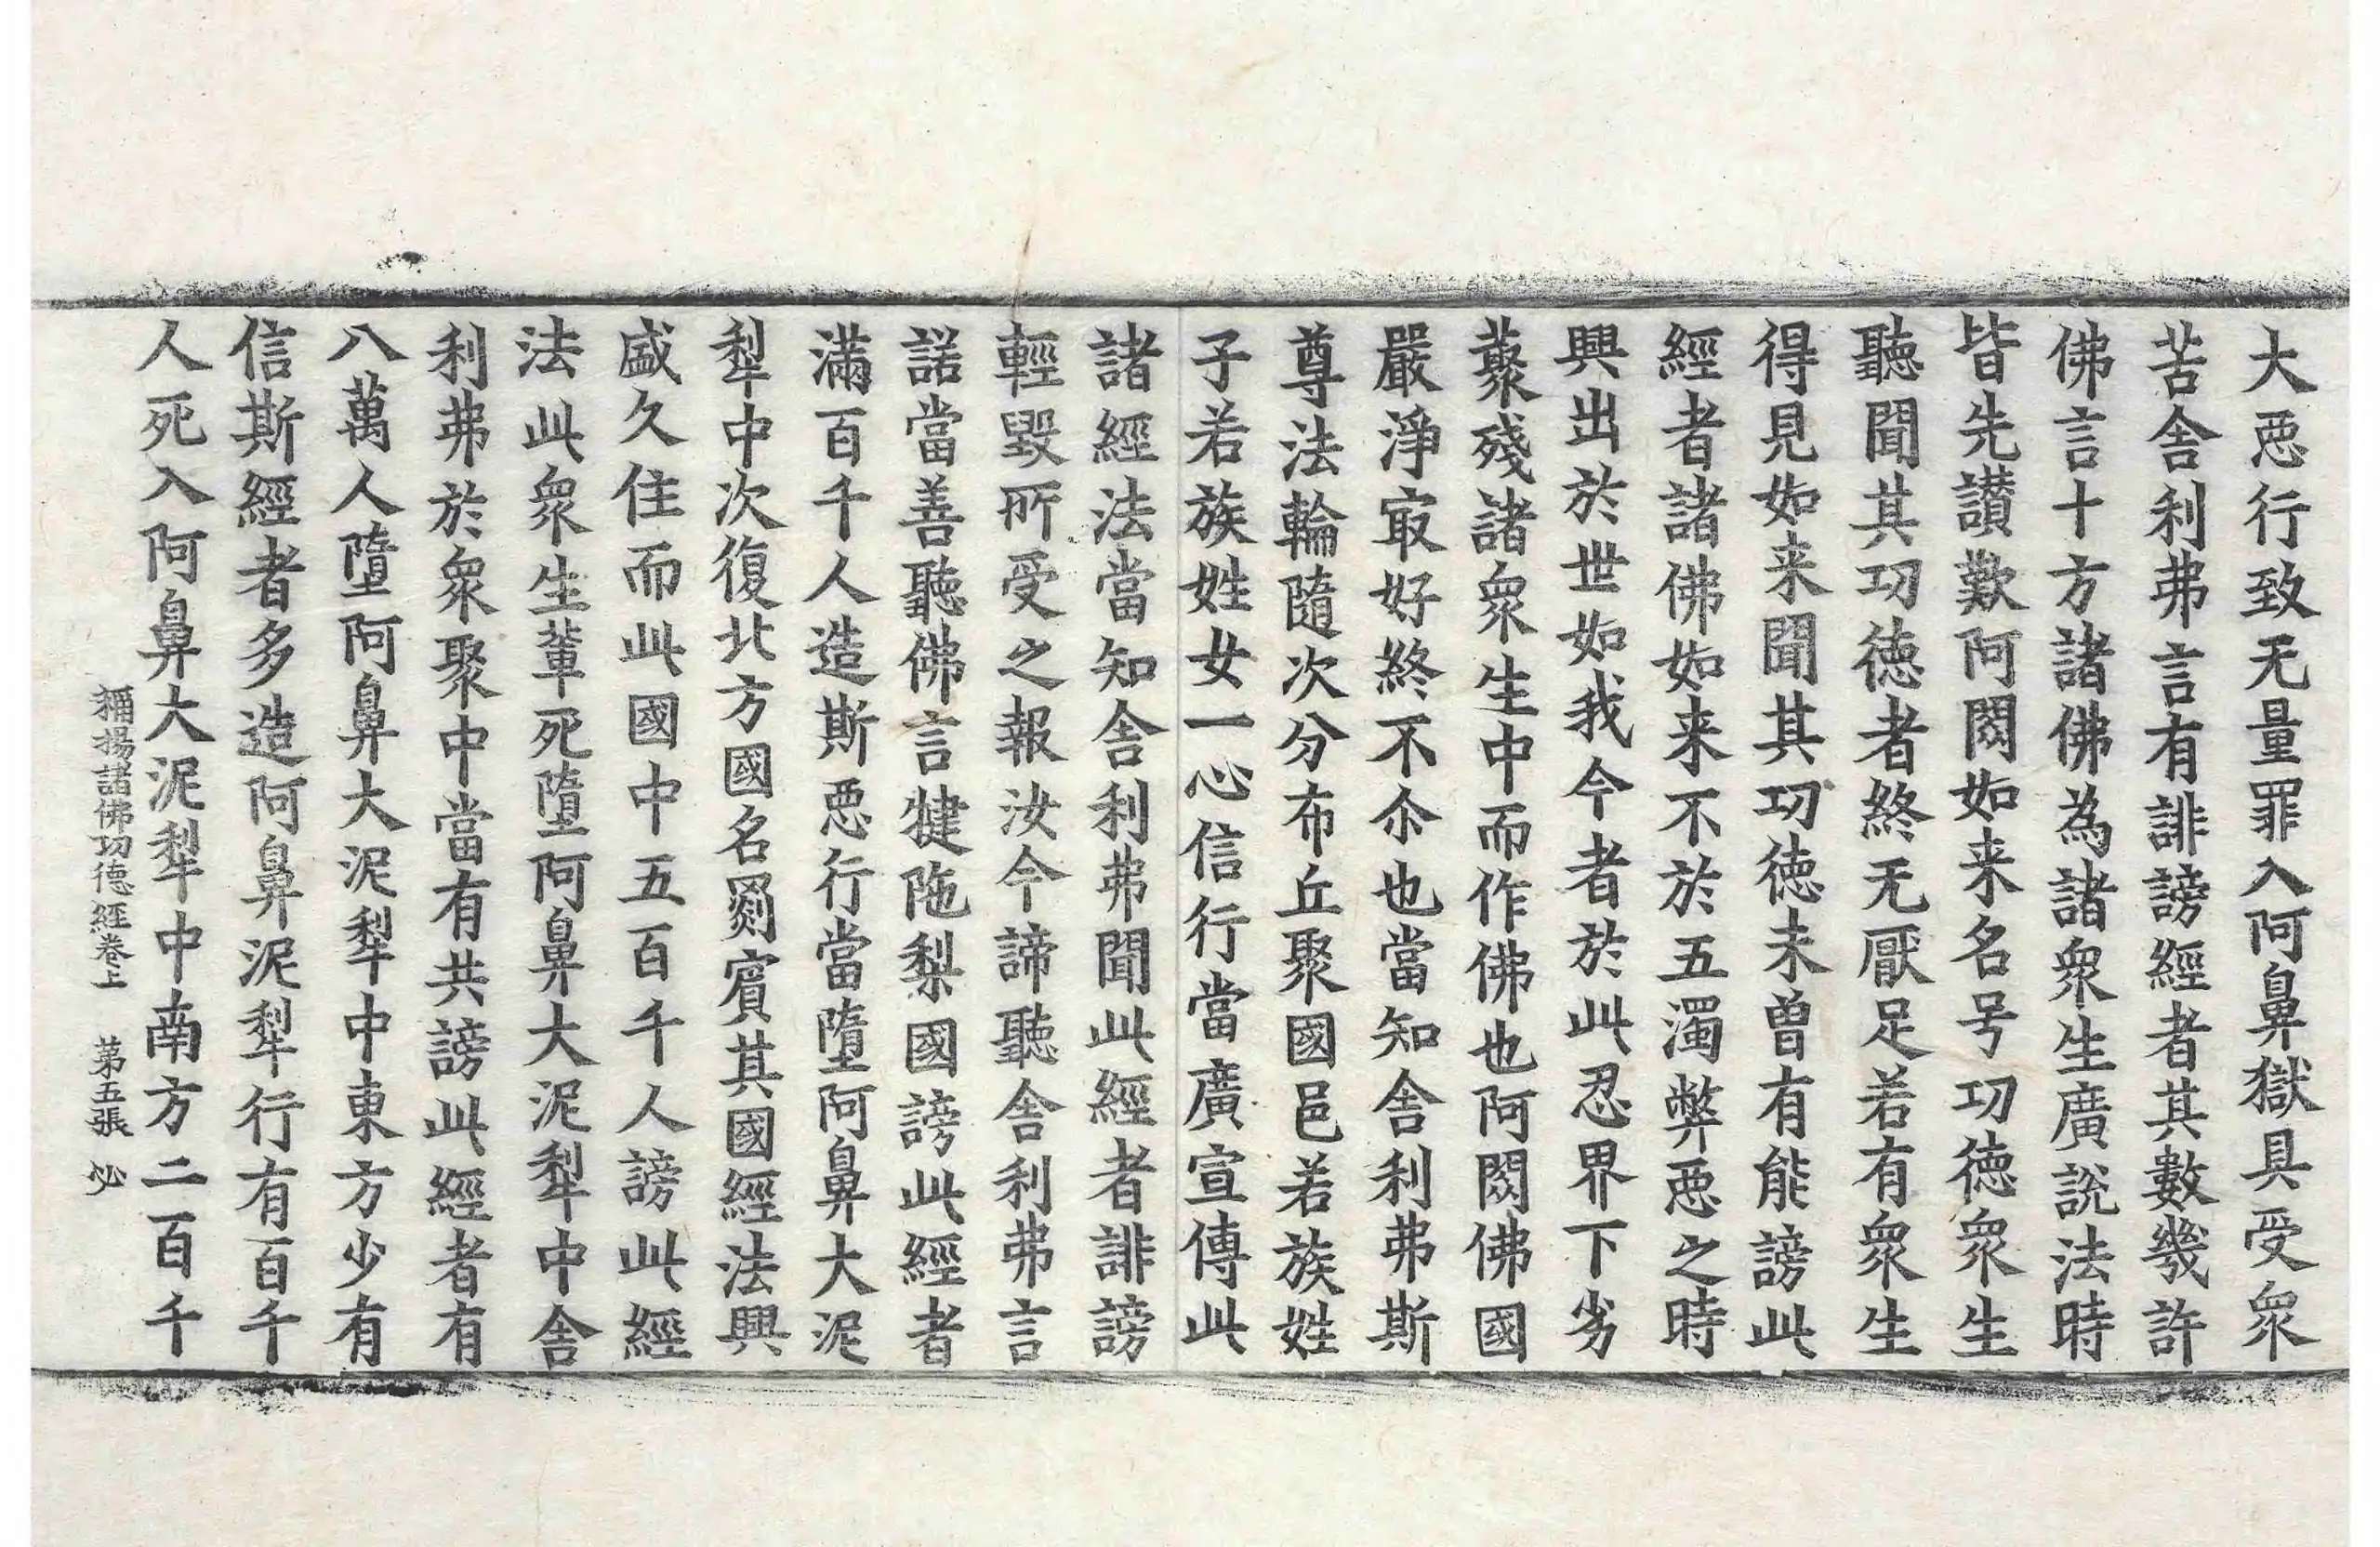 大惡行致无量罪入阿鼻獄具受衆
苦舍利弗言有誹謗經者其數幾許
佛言十方諸佛為諸衆生廣說法時
皆先讃歎阿閦如来名号功徳衆生
聽聞其功徳者終无厭足若有衆生
得見如来聞其功徳未曾有能謗此
經者諸佛如来不於五濁弊惡之時
興出於世如我今者於此忍界下劣
藂殘諸衆生中而作佛也阿閦佛國
嚴淨㝡好終不尒也當知舍利弗斯
尊法輪隨次分布丘聚國邑若族姓
子若族姓女一心信行當廣宣傳此
諸經法當知舍利弗聞此經者誹謗
輕毀所受之報汝今諦聽舍利弗言
諾當善聽佛言犍陁梨國謗此經者
滿百千人造斯惡行當墮阿鼻大泥
犁中次復北方國名罽賓其國經法興
盛久住而此國中五百千人謗此經
法此衆生輩死墮阿鼻大泥犁中舍
利弗於衆聚中當有共謗此經者有
八萬人墮阿鼻大泥犁中東方少有
信斯經者多造阿鼻泥犁行有百千
人死入阿鼻大泥犁中南方二百千
稱揚諸佛功徳經卷上　第五張　必